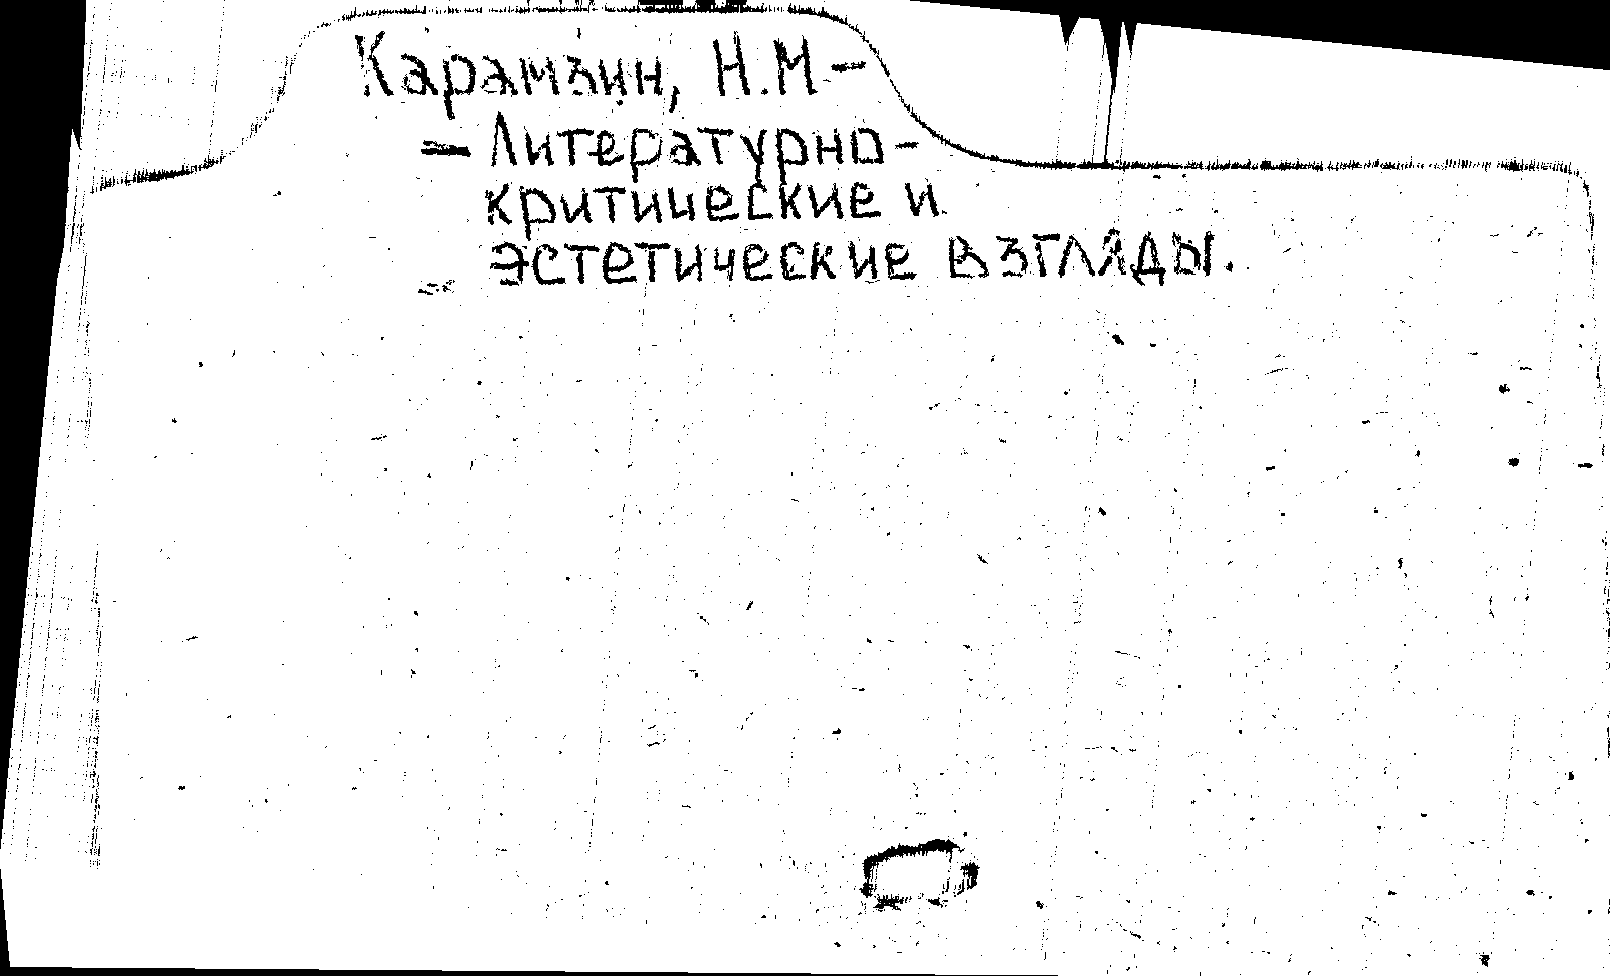 Карамзин, Н.М –
– Литературно-
критические и
эстетические взгляды.